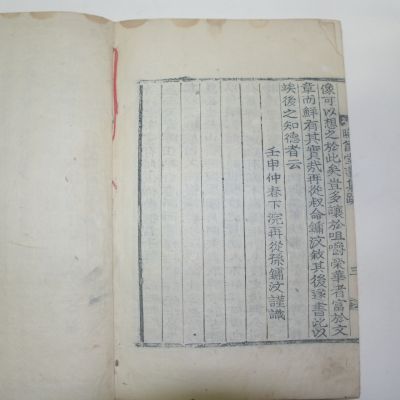 像可以想之於此矣豈多讓於咀嚼榮華者富於文
章而鮮有其實哉再從叔命鏞汶敘其後遂書此以
俟後之知德者云
壬申仲春下浣再從孫鏞汶謹識